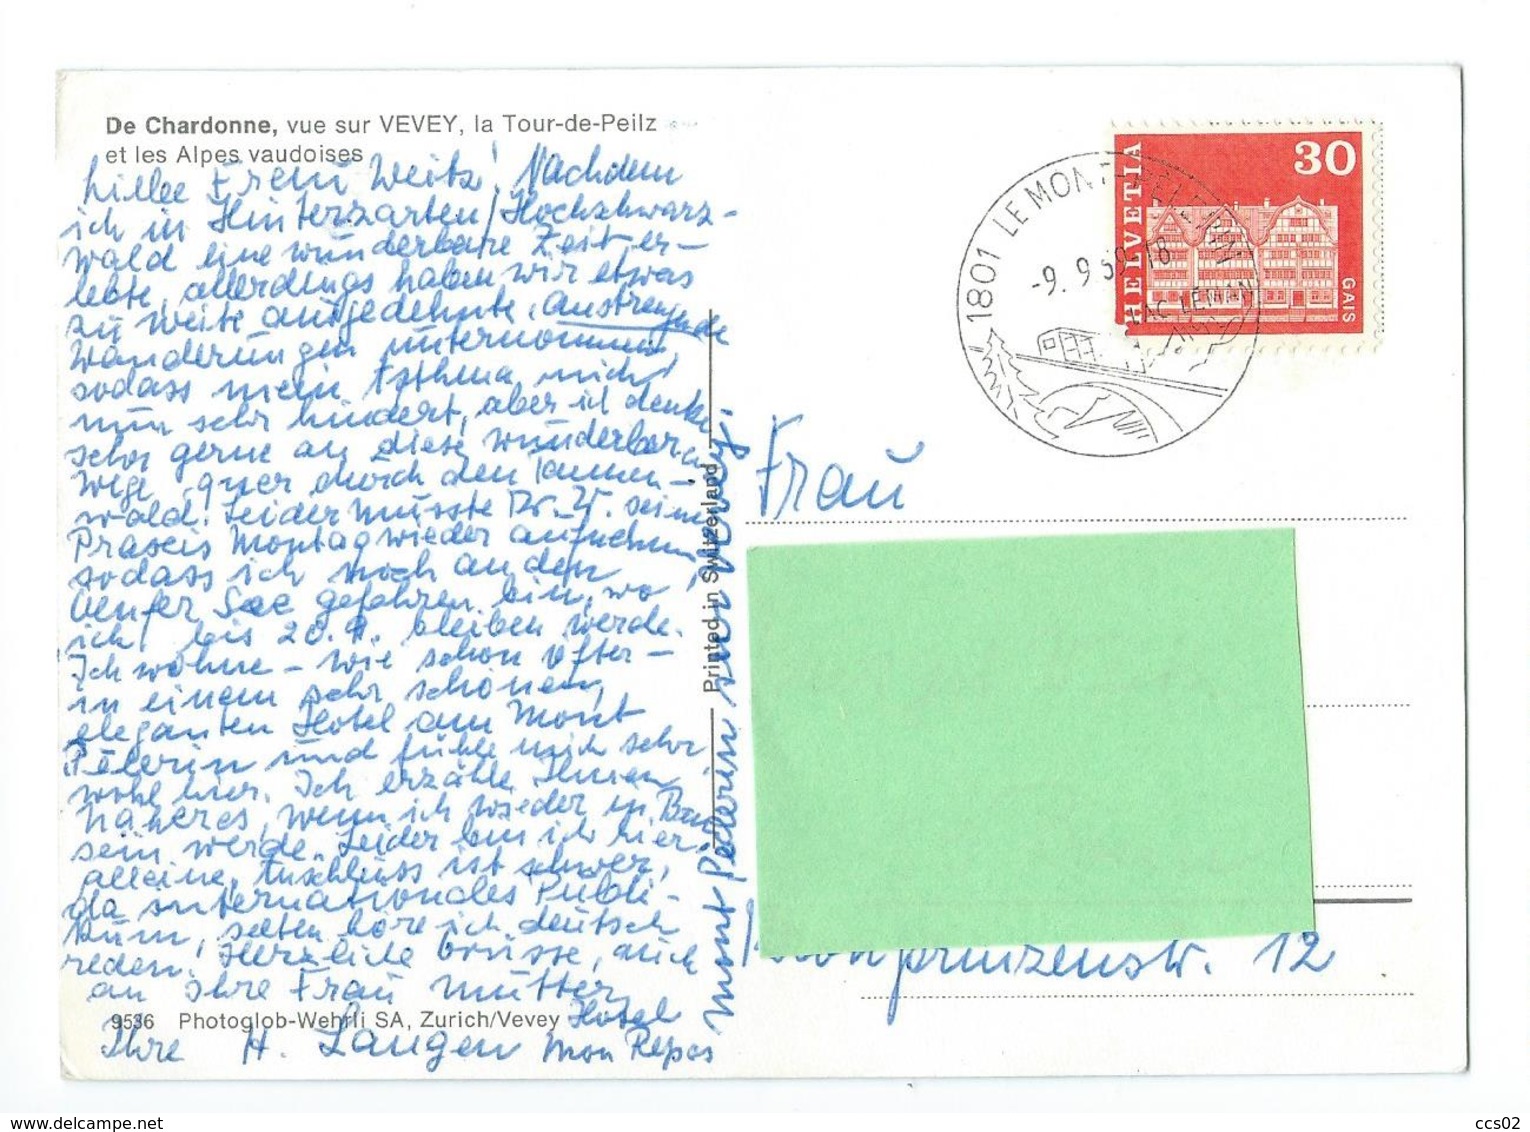 De Chardonne, vue sur VEVEY, la Tour-de-Peilz
et les Alpes vaudoises
Frau Weitz! Nachdem
ich in Hinterzarten/Hochschwarz-
wald eine wunderbare Zeit er-
lebte, allerdings haben wir etwas
zu weite ausgedehnte, anstrengende
Wanderungen unternommen,
sodass mein Asthma mich
nun sehr hindert, aber ich denke
sehr gerne an diese wunderbaren
Wege quer durch den Tannen-
wald. Leider musste Dr. seine
Praxis Montag wieder aufnehmen,
sodass ich noch an den
Genfer See gefahren bin, wo
ich bis 20.9. bleiben werde.
Ich wohne - wie schon öfter -
in einem sehr schönen,
eleganten Hotel am Mont
Pélerin und fühle mich sehr
wohl hier. Ich erzähle Ihnen
Näheres, wenn ich wieder in
sein werde. Leider bin ich hier
alleine, Anschluss ist schwer,
da internationales Publi-
kum, selten höre ich deutsch
reden. Herzliche Grüsse, auch
an Ihre Frau Mutter
Ihre H. Langen
Hotel
Mon Repos
Mont Pélerin sur Vevey
9536 Photoglob-Wehrli SA, Zurich/Vevey
Printed in Switzerland
1801 LE MONT-PÉLERIN
-9. 9 69-18
LAC LÉMAN
HELVETIA
30
GAIS
Frau
Kronprinzenstr. 12
www.delcampe.net
ccs02